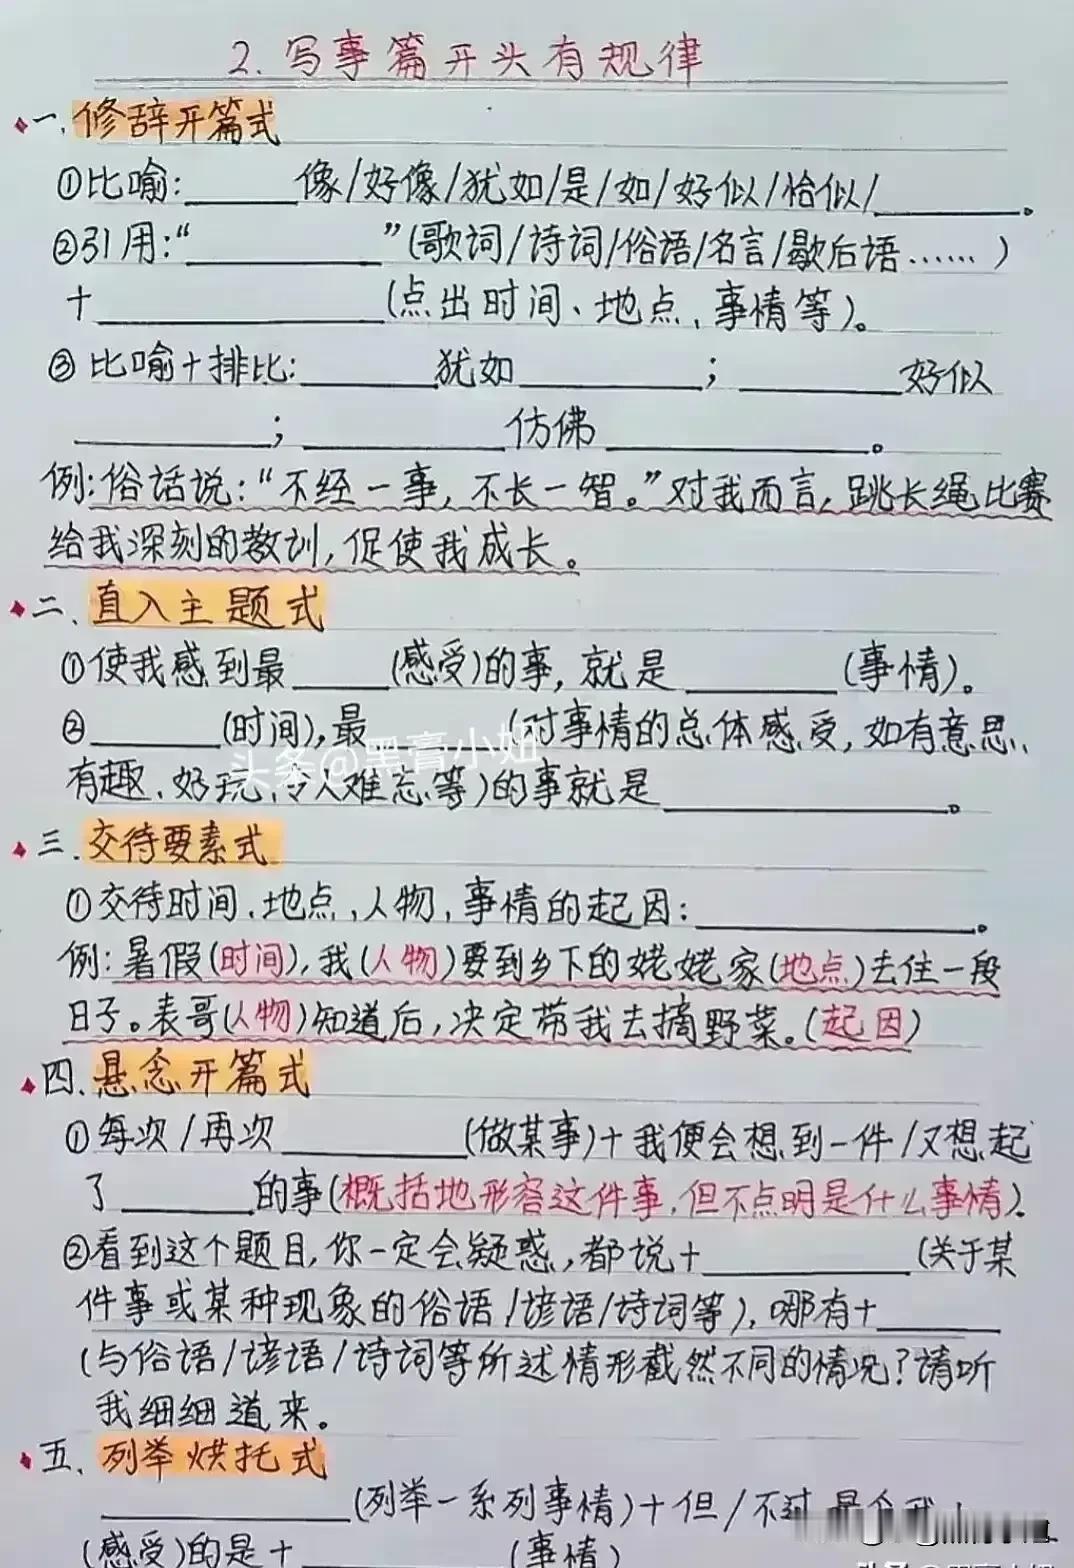 2. 写事篇开头有规律
一、修辞开篇式
①比喻:______像/好像/犹如/是/如/好似/恰似/________。
②引用:“__________”(歌词/诗词/俗语/名言/歇后语……)
+______________(点出时间、地点、事情等)。
③比喻+排比:_______犹如_________;________好似
__________;__________仿佛_____________。
例:俗话说:“不经一事,不长一智。”对我而言,跳长绳比赛
给我深刻的教训,促使我成长。
二、直入主题式
①使我感到最_____(感受)的事,就是_______(事情)。
②______(时间),最______(对事情的总体感受,如有意思、
有趣、好玩、令人难忘等)的事就是______________。
头条@黑膏小妞
三、交待要素式
①交待时间、地点、人物,事情的起因:______________。
例:暑假(时间),我(人物)要到乡下的姥姥家(地点)去住一段
日子。表哥(人物)知道后,决定带我去摘野菜。(起因)
四、悬念开篇式
①每次/再次_________(做某事)+我便会想到一件/又想起
了______的事(概括地形容这件事,但不点明是什么事情)。
②看到这个题目,你一定会疑惑,都说+__________(关于某
件事或某种现象的俗语/谚语/诗词等),哪有+______
(与俗语/谚语/诗词等所述情形截然不同的情况?请听
我细细道来。
五、列举烘托式
____________(列举一系列事情)+但/不过
(感受)的是+__________(事情)